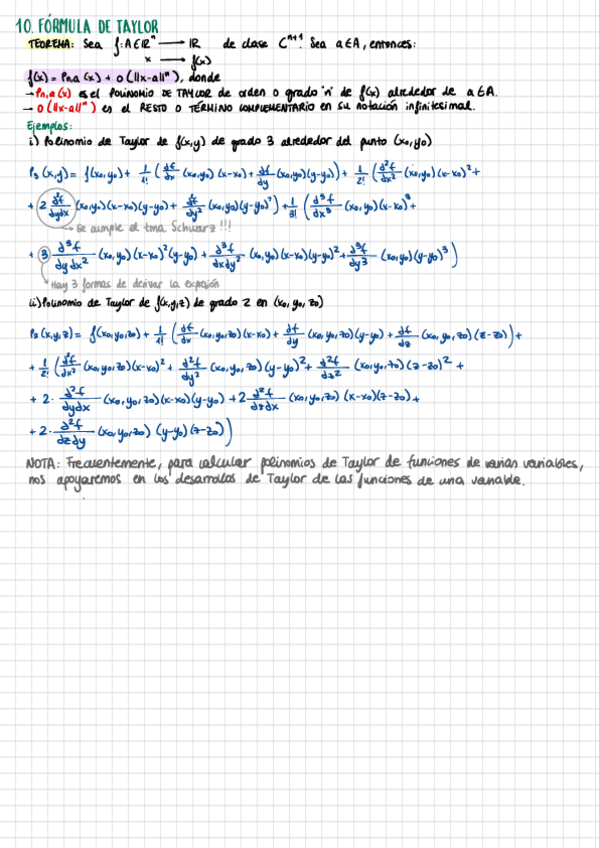 10. FÓRMULA DE TAYLOR
TEOREMA: Sea f: A∈ℝⁿ ⟶ ℝ de clase Cⁿ⁺¹. Sea a∈A, entonces:
x ⟶ f(x)
f(x) = Pn,a (x) + o (||x-a||ⁿ), donde
→ Pn,a (x) es el POLINOMIO DE TAYLOR de orden o grado 'n' de f(x) alrededor de a∈A.
→ o (||x-a||ⁿ) es el RESTO O TÉRMINO COMPLEMENTARIO en su notación infinitesimal.
Ejemplos:
i) Polinomio de Taylor de f(x,y) de grado 3 alrededor del punto (x₀,y₀)
P₃ (x,y) = f(x₀,y₀) + 1/1! (df/dx (x₀,y₀) (x-x₀) + df/dy (x₀,y₀)(y-y₀)) + 1/2! (d²f/dx² (x₀,y₀) (x-x₀)² +
+ 2 d²f/dydx (x₀,y₀)(x-x₀)(y-y₀) + d²f/dy² (x₀,y₀)(y-y₀)²) + 1/3! (d³f/dx³ (x₀,y₀) (x-x₀)³ +
→ Se cumple el tma. Schwarz!!!
+ 3 d³f/dydx² (x₀,y₀) (x-x₀)² (y-y₀) + d³f/dxdy² (x₀,y₀)(x-x₀)(y-y₀)² + d³f/dy³ (x₀,y₀)(y-y₀)³)
→ Hay 3 formas de derivar la expresión
ii) Polinomio de Taylor de f(x,y,z) de grado 2 en (x₀, y₀, z₀)
P₂ (x,y,z) = f(x₀,y₀,z₀) + 1/1! (df/dx (x₀,y₀,z₀)(x-x₀) + df/dy (x₀,y₀,z₀)(y-y₀) + df/dz (x₀,y₀,z₀)(z-z₀)) +
+ 1/2! (d²f/dx² (x₀,y₀,z₀)(x-x₀)² + d²f/dy² (x₀,y₀,z₀)(y-y₀)² + d²f/dz² (x₀,y₀,z₀)(z-z₀)² +
+ 2· d²f/dydx (x₀,y₀,z₀)(x-x₀)(y-y₀) + 2 d²f/dzdx (x₀,y₀,z₀) (x-x₀)(z-z₀) +
+ 2· d²f/dzdy (x₀,y₀,z₀) (y-y₀)(z-z₀))
NOTA: Frecuentemente, para calcular polinomios de Taylor de funciones de varias variables,
nos apoyaremos en los desarrollos de Taylor de las funciones de una variable.